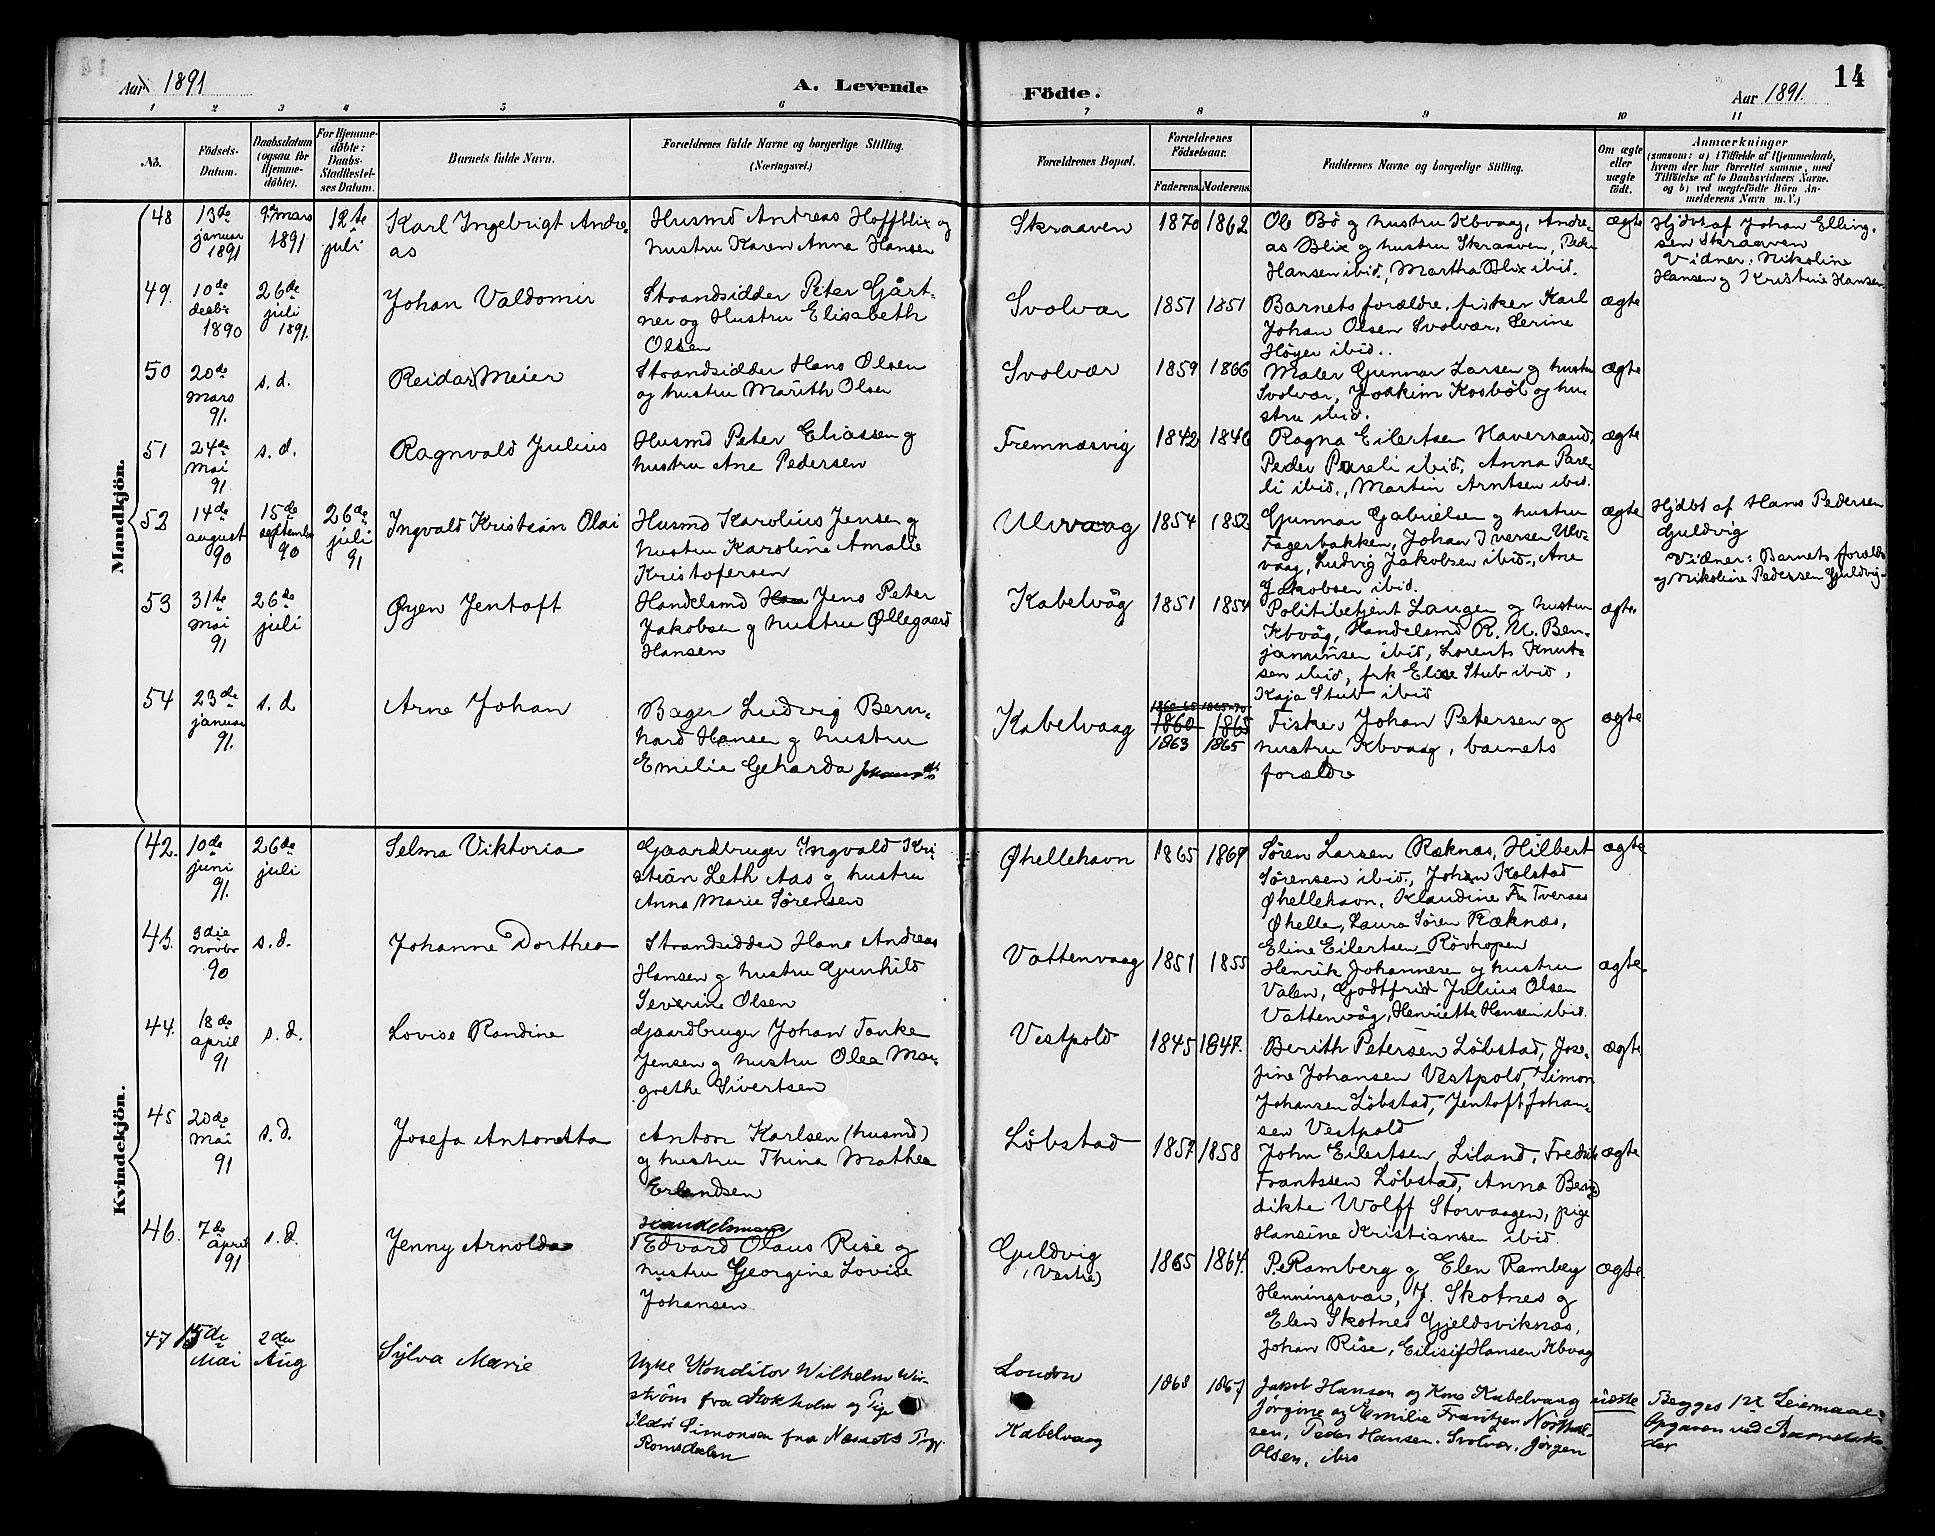 Aar 1891
A. Levende
Födte.
Aar 1891.
14
1 2 3 4 5 6 7 8 9 10 11
No.
Födsels-
Datum.
Daabsdatum
(ogsaa for
Hjemme-
döbte).
For Hjemme-
döbte:
Daabs-
Stadfæstel-
ses Datum.
Barnets fulde Navn.
Forældrenes fulde Navne og borgerlige Stilling.
(Næringsvei.)
Forældrenes Bopæl.
Forældrenes
Födselsaar.
Faderens. Moderens.
Faddernes Navne og borgerlige Stilling.
Om ægte
eller
uægte
födt.
Anmærkninger
(saasom: a) i Tilfælde af Hjemmedaab,
hvem der har forrettet samme, med
Tilföielse af to Daabsvidners Navne.
og b) ved uægtefödte Börn An-
melderens Navn m. V.)
Mandkjön.
48
13de
januar
1891
9de mars
1891
12te
juli
Karl Ingebrigt Andre-
as
Husmd Andreas Hoffblix og
hustru Karen Anna Hansen
Skraaven
1870 1862
Ole Bö og hustru Kbvaag, Andre-
as Blix og hustru Skraaven, Peder
Hansen ibid, Martha Blix ibid.
ægte
Hjdöbt af Johan Elling-
sen Skraaven
Vidner: Nikoline
Hansen og Kristine Hansen
49.
10de
decbr
1890
26de
juli
1891.
Johan Valdomir
Strandsidder Peter Gårt-
ner og Hustru Elisabeth
Olsen
Svolvær
1851 1851
Barnets forældre, fisker Karl
Johan Olsen Svolvær, Serine
Höyer ibid.
ægte
50
20de
mars
91.
s. d.
Reidar Meier
Strandsidder Hans Olsen
og hustru Marith Olsen
Svolvær
1859 1866
Maler Gunnar Larsen og hustru
Svolvær, Joakim Kosböl og hu-
stru ibid.
ægte
51
24de
mai
91
s. d.
Ragnvald Julius
Husmd Peter Eliassen og
hustru Ane Pedersen
Fremnæsvig
1842 1846
Ragna Eilertsen Haversand,
Peder Pareli ibid, Anna Pare-
li ibid., Martin Arntsen ibid.
ægte
52
14de
august
90
15de
september
90
26de
juli
91
Ingvald Kristian Olai
Husmd Karolius Jensen og
hustru Karoline Amalie
Kristofersen
Ulvvaag
1854 1852
Gunnar Gabrielsen og hustru
Fagerbakken, Johan Iversen Ulv-
vaag, Ludvig Jakobsen ibid., Ane
Jakobsen ibid.
ægte
Hjdöbt af Hans Pedersen
Guldvig
Vidner: Barnets forældre
og Nikoline Pedersen Guldvig
53
31te
mai
91
26de
juli
Øyen Jentoft
Handelsmd Jens Peter
Jakobsen og hustru Øllegaard
Hansen
Kabelvåg
1851 1854
Politibetjent Langen og hustru
Kbvåg, Handelsmd R. M. Ben-
jaminsen ibid, Lorents Knut-
sen ibid, frk Elise Stub ibid,
Kaja Stub ibid
ægte
54
23de
januar
91.
s. d
Arne Johan
Bager Ludvig Bern-
hard Hansen og hustru
Emilie Geharda
Kabelvaag
1860-65 1865-70
1860 1865
1863 1865
Fisker Johan Petersen og
hustru Kbvaag, barnets
forældre
ægte
Kvindekjön.
42.
10de
juni
91.
26de
juli
Selma Viktoria
Gaardbruger Ingvald Kri-
stian Leth Aas og hustru
Anna Marie Sørensen
Øhellehavn
1865 1869
Søren Larsen Ræknæs, Hilbert
Sørensen ibid., Johan Kolstad
Øhellehavn, Klaudine Tveraas
Øhelle, Laura Søren Ræknæs,
Eline Eilertsen Rövhopen
ægte
43.
3die
novbr
90
s. d.
Johanne Dorthea
Strandsidder Hans Andreas
Hansen og hustru Gunhild
Severine Olsen
Vattenvaag
1851 1855
Henrik Johannesen og hustru
Valen, Godtfrid Julius Olsen
Vattenvåg, Henriette Hansen ibid.
ægte
44.
18de
april
91
s. d.
Lovise Randine
Gaardbruger Johan Tanke
Jensen og hustru Olea Mar-
grethe Sivertsen
Vestpold
1845 1847.
Berith Petersen Løbstad, Jose-
fine Johansen Vestpold, Simon
Johansen Løbstad, Jentoft Johan-
sen Vestpold
ægte
45
20de
mai
91
s. d.
Josefa Antonetta
Anton Karlsen (husmd)
og hustru Thina Mathea
Erlandsen
Løbstad
1859 1858
John Eilertsen Liland, Fredrik
Frantssen Løbstad, Anna Bene-
dikte Wolff Storvaagen, pige
Hansine Kristiansen ibid
ægte
46.
7de
april
91
s. d.
Jenny Arnolda
Handelsmand
Edvard Olaus Rise og
hustru Georgine Lovise
Johansen
Guldvig
(Vestre)
1865 1864.
P. Ramberg og Elen Ramberg
Henningsvær, J. Skotnes og
Elen Skotnes Gjeldsviknæs,
Johan Rise, Eilisif Hansen Kbvaag
ægte.
47
15de
Mai
2den
Aug
Sylva Marie
Ugke Konditor Wilhelm Wi-
ström fra Stokholm og Pige
Ildri Simonsen fra Næssets Prgj.
Romsdalen
London
Kabelvaag
1868 1867
Jakob Hansen og Kone Kabelvaag
Jörgine og Emilie Frantzen
sen, Peder Hansen. Svolvær, Jörgen
Olsen, ibid
uægte
Begges 1st Leiermaal.
Opgaven ved